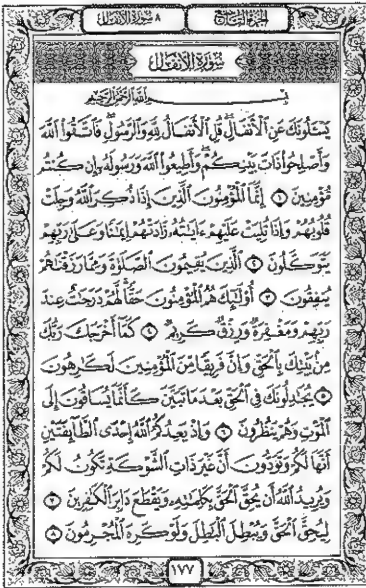 الجزء التاسع
٨ سورة الأنفال
سُورَةُ الأَنفَالِ
بِسْمِ ٱللَّهِ ٱلرَّحْمَٰنِ ٱلرَّحِيمِ
يَسْـَٔلُونَكَ عَنِ ٱلْأَنفَالِ ۖ قُلِ ٱلْأَنفَالُ لِلَّهِ وَٱلرَّسُولِ ۖ فَٱتَّقُوا۟ ٱللَّهَ
وَأَصْلِحُوا۟ ذَاتَ بَيْنِكُمْ ۖ وَأَطِيعُوا۟ ٱللَّهَ وَرَسُولَهُۥٓ إِن كُنتُم
مُّؤْمِنِينَ ١ إِنَّمَا ٱلْمُؤْمِنُونَ ٱلَّذِينَ إِذَا ذُكِرَ ٱللَّهُ وَجِلَتْ
قُلُوبُهُمْ وَإِذَا تُلِيَتْ عَلَيْهِمْ ءَايَٰتُهُۥ زَادَتْهُمْ إِيمَٰنًا وَعَلَىٰ رَبِّهِمْ
يَتَوَكَّلُونَ ٢ ٱلَّذِينَ يُقِيمُونَ ٱلصَّلَوٰةَ وَمِمَّا رَزَقْنَٰهُمْ
يُنفِقُونَ ٣ أُو۟لَٰٓئِكَ هُمُ ٱلْمُؤْمِنُونَ حَقًّا ۚ لَّهُمْ دَرَجَٰتٌ عِندَ
رَبِّهِمْ وَمَغْفِرَةٌ وَرِزْقٌ كَرِيمٌ ٤ كَمَآ أَخْرَجَكَ رَبُّكَ
مِنۢ بَيْتِكَ بِٱلْحَقِّ وَإِنَّ فَرِيقًا مِّنَ ٱلْمُؤْمِنِينَ لَكَٰرِهُونَ
٥ يُجَٰدِلُونَكَ فِى ٱلْحَقِّ بَعْدَ مَا تَبَيَّنَ كَأَنَّمَا يُسَاقُونَ إِلَى
ٱلْمَوْتِ وَهُمْ يَنظُرُونَ ٦ وَإِذْ يَعِدُكُمُ ٱللَّهُ إِحْدَى ٱلطَّآئِفَتَيْنِ
أَنَّهَا لَكُمْ وَتَوَدُّونَ أَنَّ غَيْرَ ذَاتِ ٱلشَّوْكَةِ تَكُونُ لَكُمْ
وَيُرِيدُ ٱللَّهُ أَن يُحِقَّ ٱلْحَقَّ بِكَلِمَٰتِهِۦ وَيَقْطَعَ دَابِرَ ٱلْكَٰفِرِينَ ٧
لِيُحِقَّ ٱلْحَقَّ وَيُبْطِلَ ٱلْبَٰطِلَ وَلَوْ كَرِهَ ٱلْمُجْرِمُونَ ٨
١٧٧